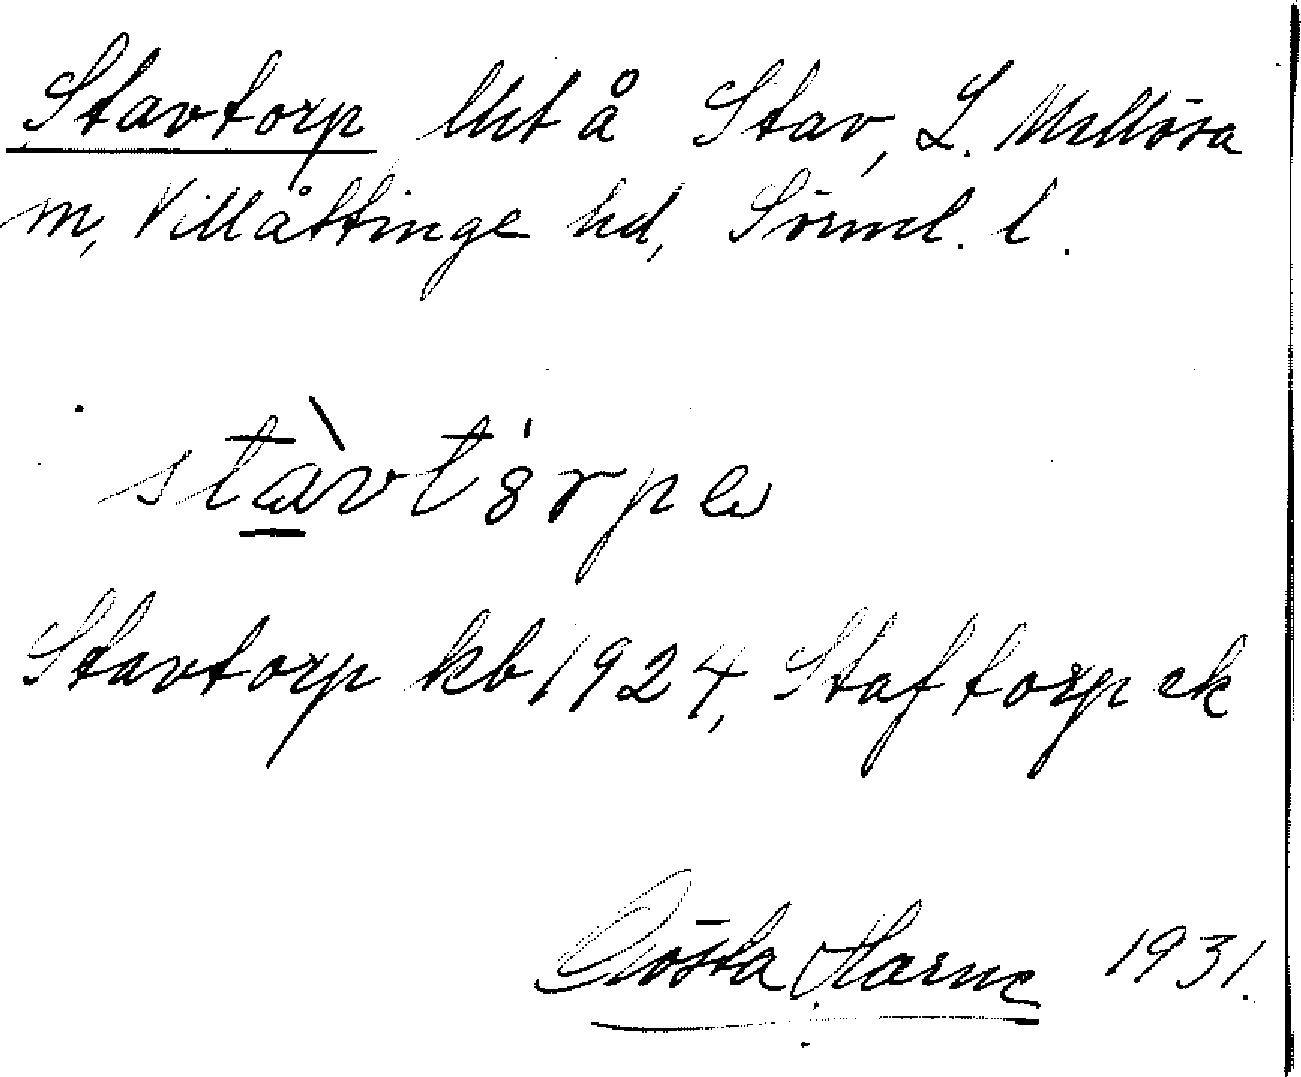 Stavtorp lht å Stav, L. Mellösa
sn, Villåttinge hd, Sörml. l.
stàvtɵrpe
Stavtorp kb 1924, Staftorp ek
Gösta Harne 1931.